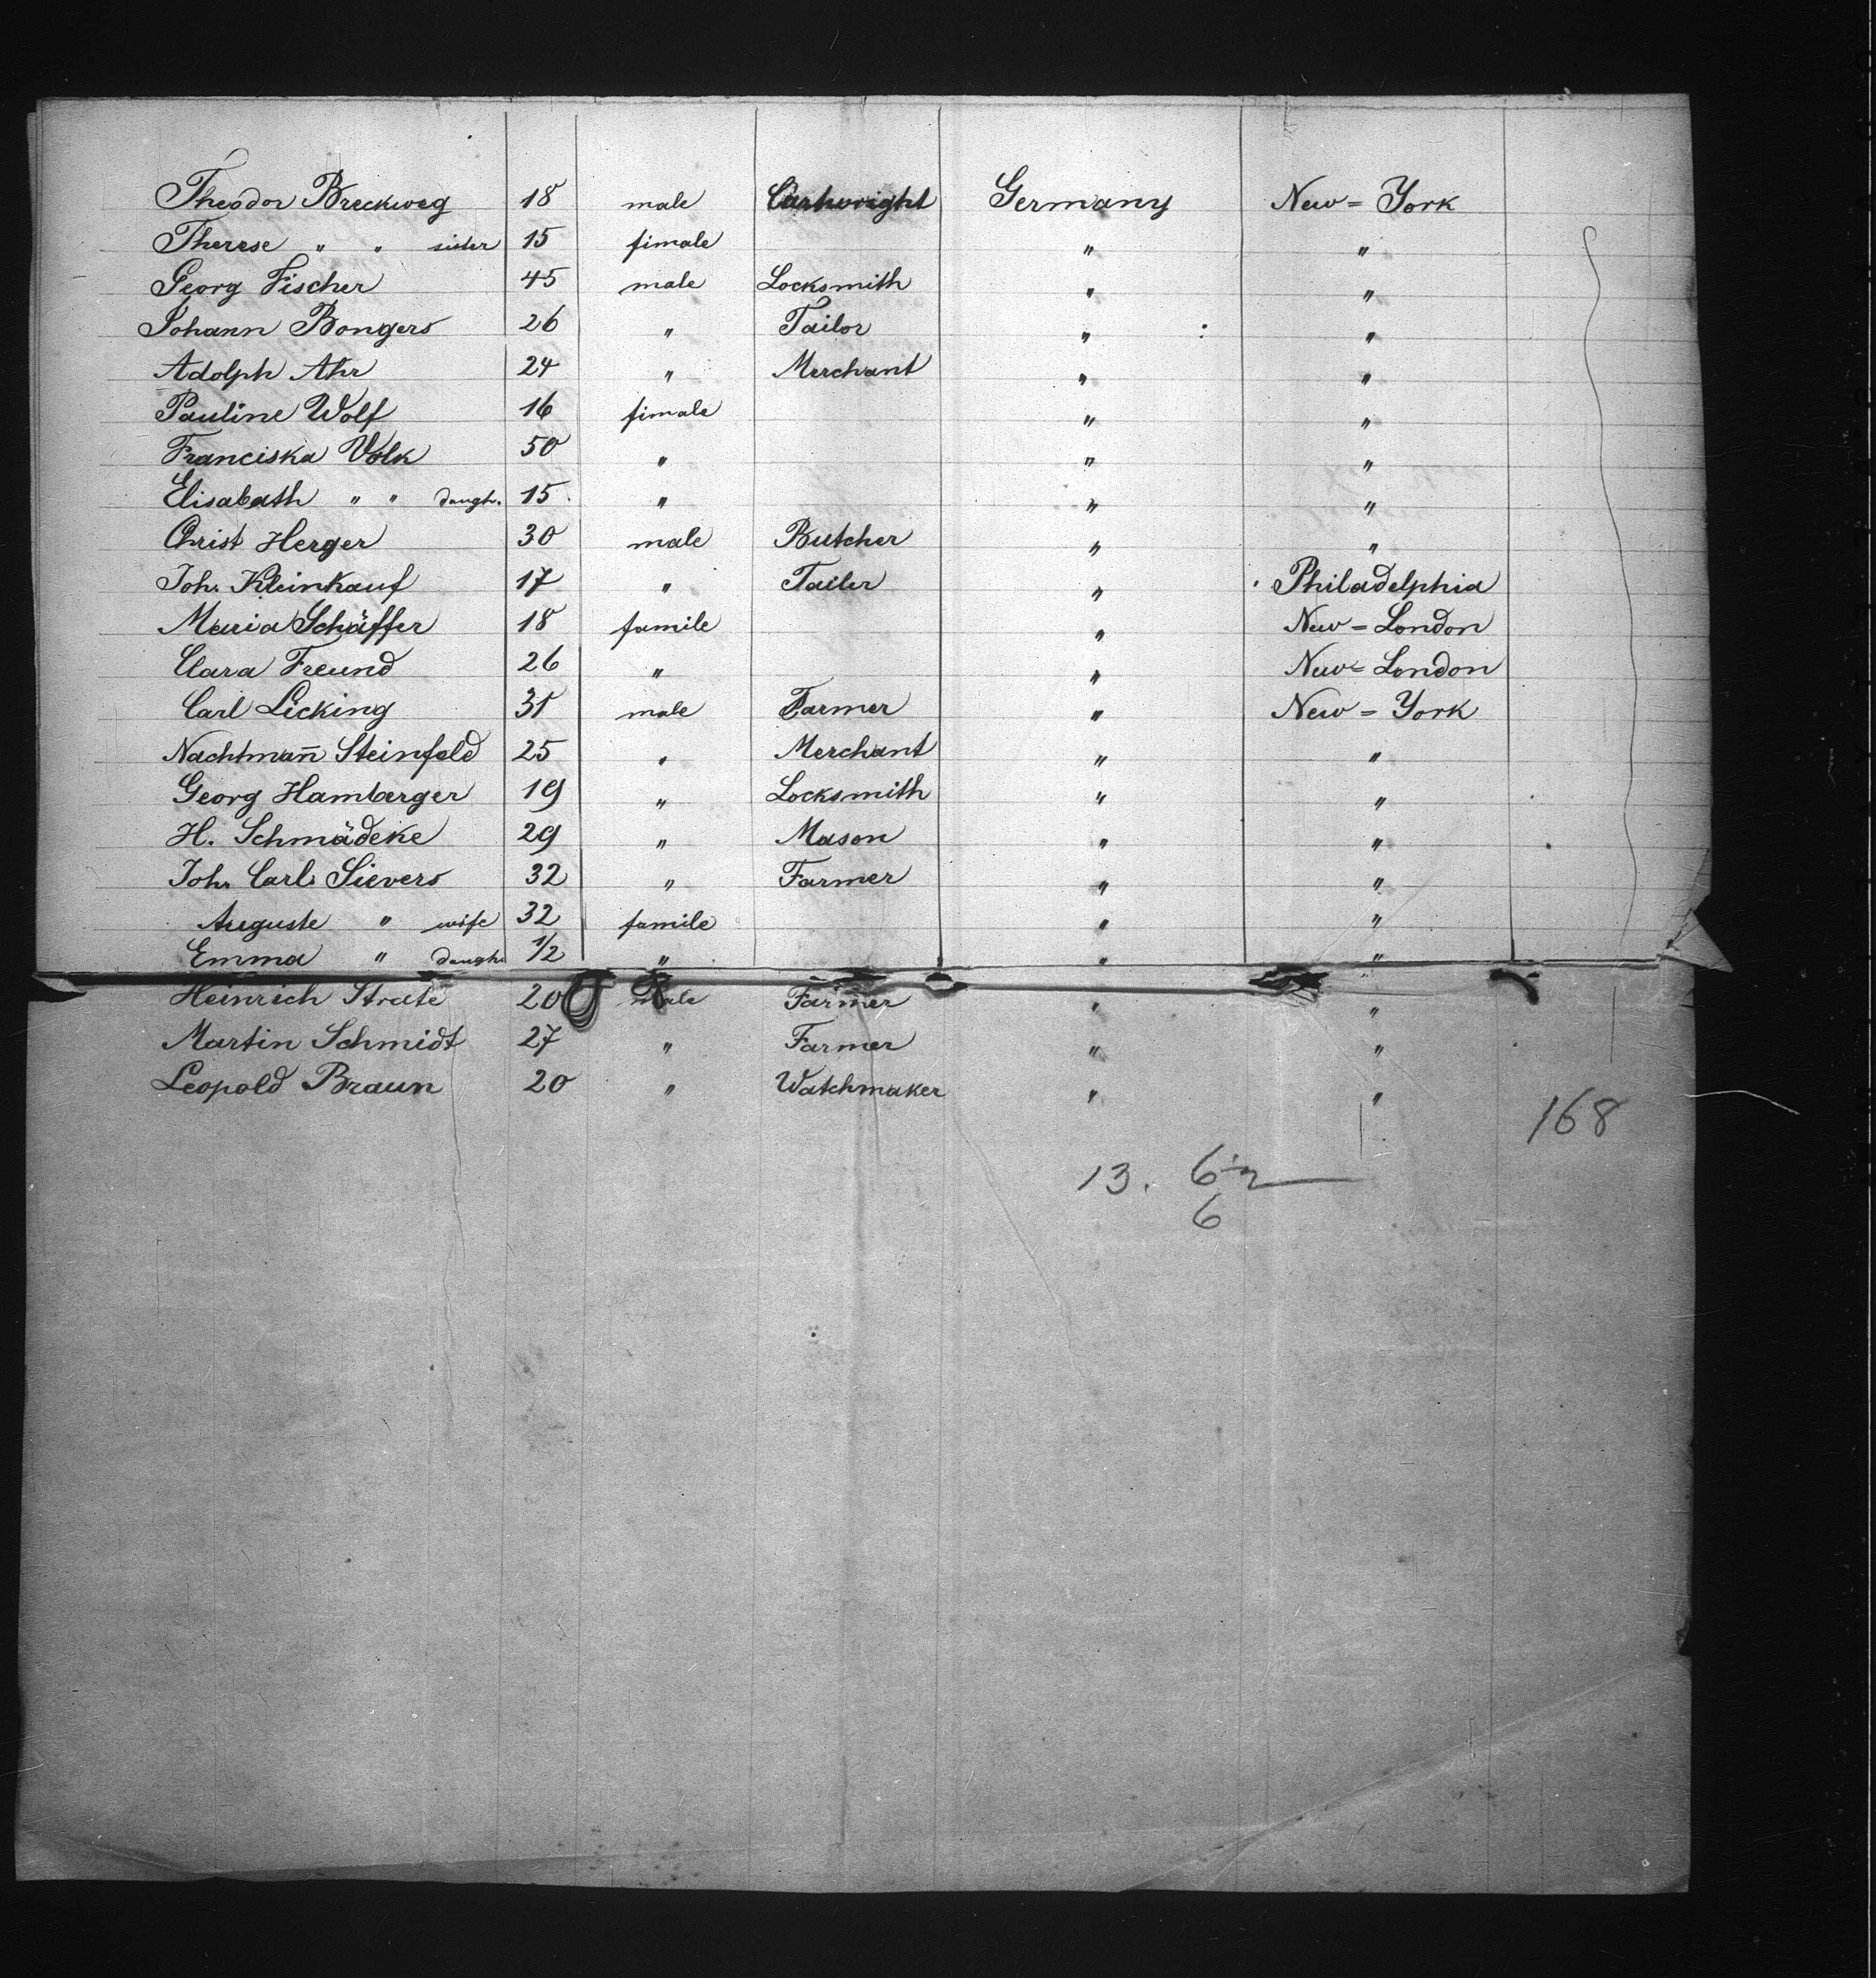 Theodor Breckweg 18 male Cartwright Germany New=York
Therese " " sister 15 fimale " "
Georg Fischer 45 male Locksmith " "
Johann Bongers 26 " Tailor " "
Adolph Ahr 24 " Merchant " "
Pauline Wolf 16 fimale " "
Franciska Volk 50 " " "
Elisabeth " " daugh. 15 " " "
Christ Herger 30 male Butcher " "
Joh. Kleinkauf 17 " Tailer " Philadelphia
Maria Schäffer 18 famile " New=London
Clara Freund 26 " " New=London
Carl Licking 31 male Farmer " New=York
Nachtman̄ Steinfeld 25 " Merchant " "
Georg Hamberger 19 " Locksmith " "
H. Schmädeke 29 " Mason " "
Joh. Carl Sievers 32 " Farmer " "
Auguste " wife 32 famile " "
Emma " daugh. 1/2 " " "
Heinrich Strate 20 male Farmer " "
Martin Schmidt 27 " Farmer " "
Leopold Braun 20 " Watchmaker " "
168
13. 6
6